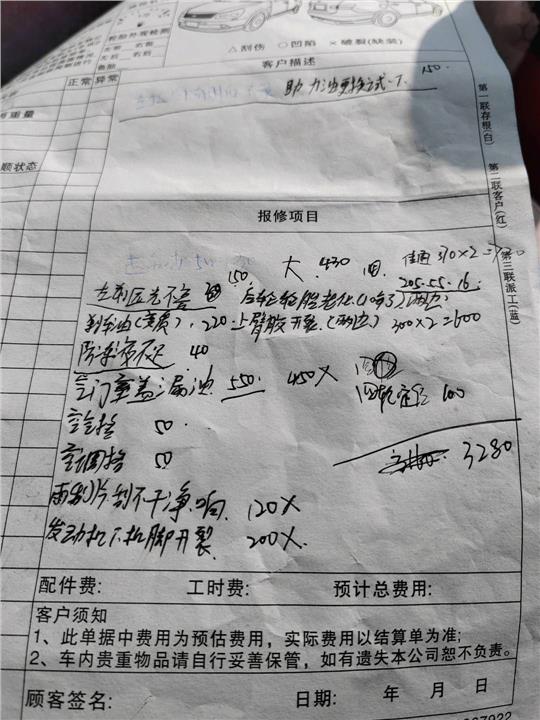 △刮伤 ○凹陷 ×破裂(缺装)
正常 异常
客户描述
150
助力油更换
重量
顺状态
第一联存根(白) 第二联客户(红) 第三联派工(蓝)
报修项目
150 大 430 佳通 310×2=
205.55.16
后轮轮胎老化 (两边)
刹车油 220 上臂胶开裂 (两边) 300×2=600
防冻液不足 40
气门室盖漏油 550 450×
四轮定位 100
空气格 50
空调格 50
3280
雨刮片刮不干净.响 120×
发动机下机脚开裂 200×
配件费: 工时费: 预计总费用:
客户须知
1、此单据中费用为预估费用，实际费用以结算单为准;
2、车内贵重物品请自行妥善保管，如有遗失本公司恕不负责。
顾客签名: 日期: 年 月 日